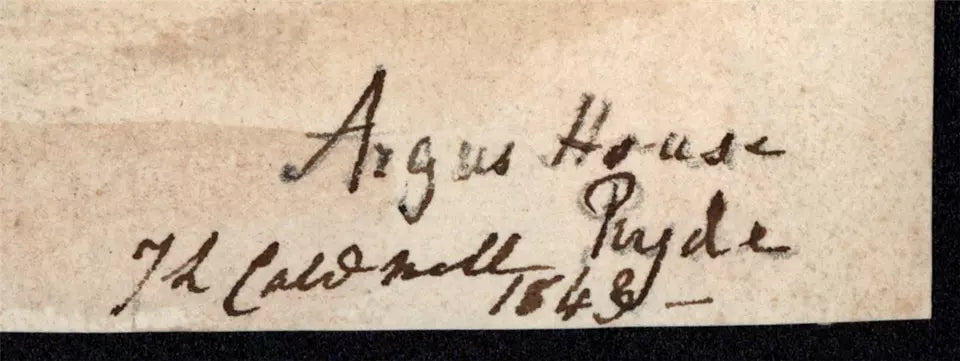 Argus House
Ryde
Th Caldwell
184